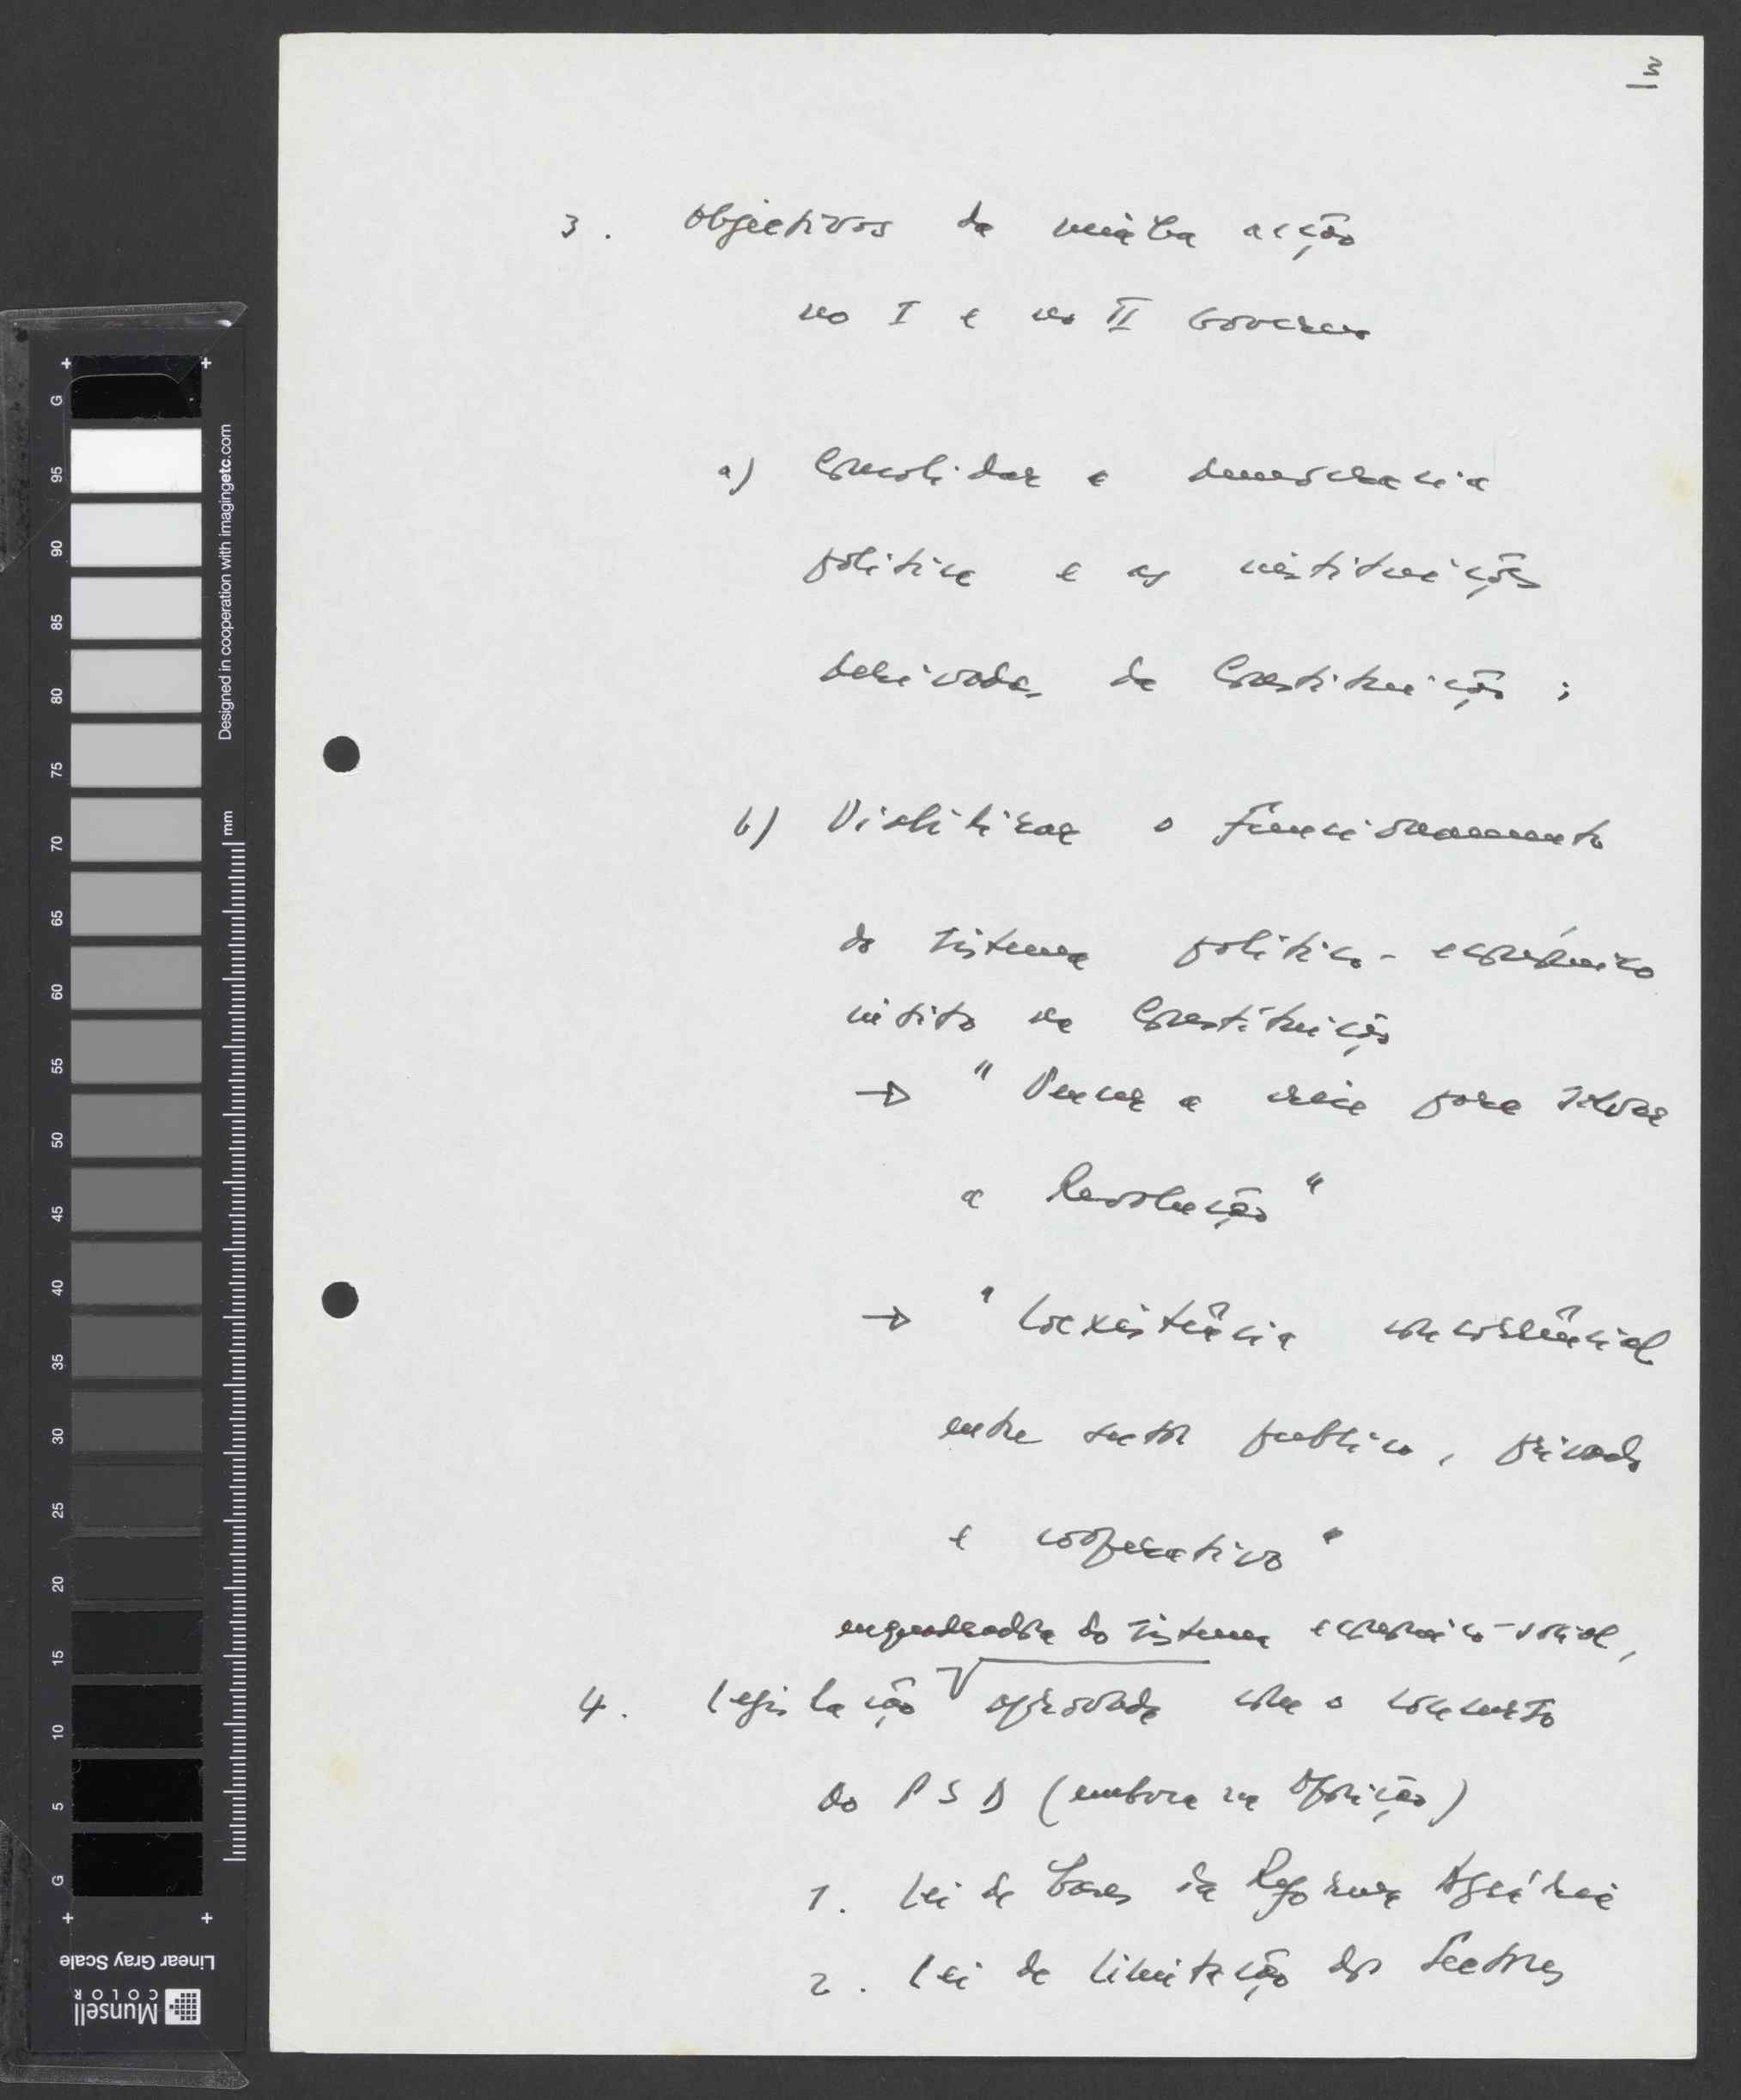 3
3. Objectivos da minha acção
no I e no II Governo
a) Consolidar a democracia
política e as instituições
derivadas da Constituição;
b) Viabilizar o funcionamento
do sistema político-económico
ínsito na Constituição
→ "Vencer a crise para salvar
a Revolução"
→ "Coexistência concorrêncial
entre sector publico, privado
e cooperativo"
enquadradora do sistema económico-social,
4. Legislação aprovada com o concurso
do PSD (embora na Oposição)
1. Lei de Bases da Reforma Agrária
2. Lei de limitação dos Sectores
G 95 90 85 80 75 70 65 60 55 50 45 40 35 30 25 20 15 10 5 G
Designed in cooperation with imagingetc.com
mm
Linear Gray Scale
Munsell
COLOR